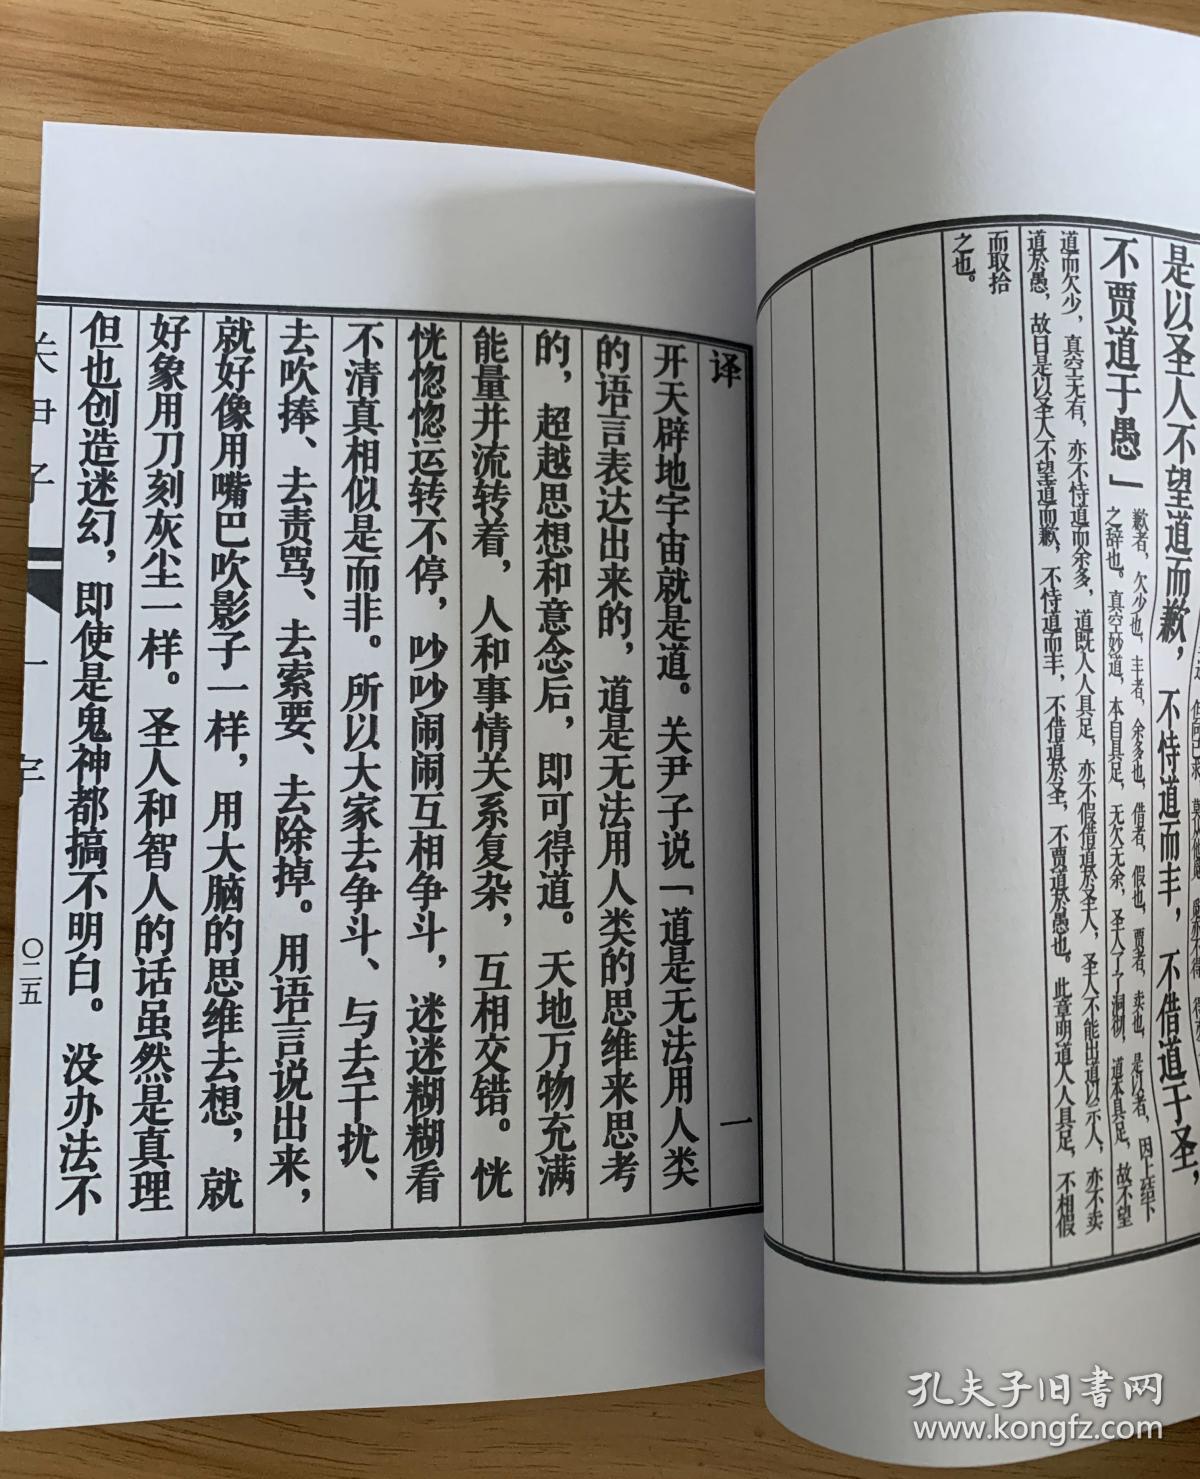 是以圣人不望道而歉，不恃道而丰，不借道于圣，
不贾道于愚」
歉者，欠少也，丰者，余多也，借者，假也，贾者，卖也，是以者，因上结下
之辞也。真空妙道，本自具足，无欠无余，圣人了了洞彻，道本具足，故不望
道而欠少，真空无有，亦不恃道而余多，道既人人具足，亦不假借道於圣人，圣人不能出道以示人，亦不卖
道於愚，故曰是以圣人不望道而歉，不恃道而丰，不借道於圣，不贾道於愚也。此章明道人人具足，不相假
而取拾
之也。
译 一
开天辟地宇宙就是道。关尹子说「道是无法用人类
的语言表达出来的，道是无法用人类的思维来思考
的，超越思想和意念后，即可得道。天地万物充满
能量并流转着，人和事情关系复杂，互相交错。恍
恍惚惚运转不停，吵吵闹闹互相争斗，迷迷糊糊看
不清真相似是而非。所以大家去争斗、与去干扰、
去吹捧、去责骂、去索要、去除掉。用语言说出来，
就好像用嘴巴吹影子一样，用大脑的思维去想，就
好象用刀刻灰尘一样。圣人和智人的话虽然是真理
但也创造迷幻，即使是鬼神都搞不明白。没办法不
关尹子 一宇 〇二五
孔夫子旧书网
www.kongfz.com